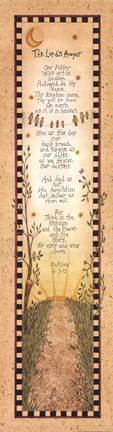 The Lord's Prayer
Our Father
Who art in
heaven,
Hallowed be thy
Name.
Thy kingdom come,
Thy will be done
On earth
as it is in heaven.
Give us this day
our
daily bread,
and forgive us
our debts
as we forgive
our debtors
And lead us
not
into temptation
but deliver us
from evil
For
Thine is the
kingdom
and the Power
and the
Glory
for ever and ever
Amen
Matthew
6:9-13